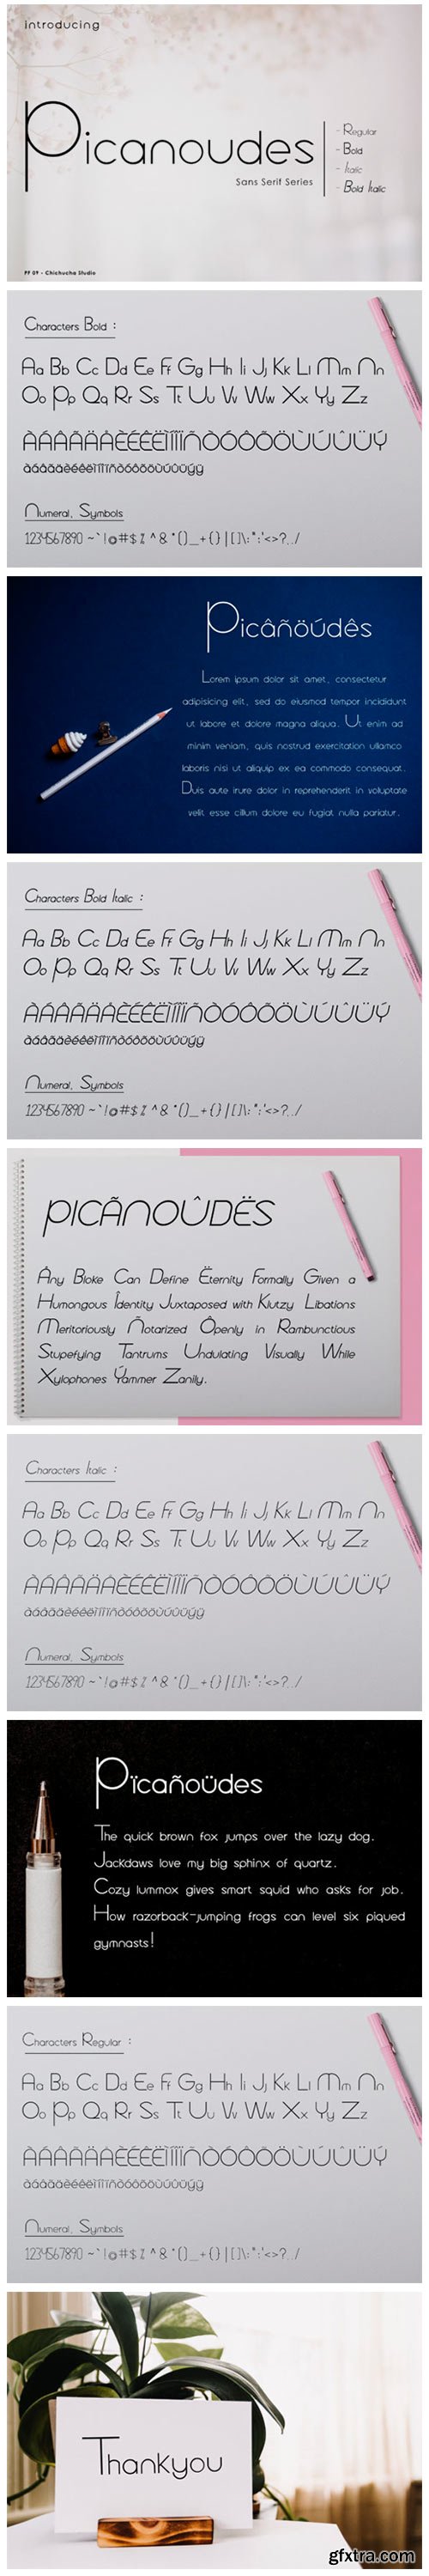 introducing
Picanoudes
Sans Serif Series
- Regular
- Bold
- Italic
- Bold Italic
PF 09 - Chichucha Studio
Characters Bold :
Aa Bb Cc Dd Ee Ff Gg Hh Ii Jj Kk Ll Mm Nn
Oo Pp Qq Rr Ss Tt Uu Vv Ww Xx Yy Zz
ÀÁÂÃÄÅÈÉÊËÌÍÎÏÑÒÓÔÕÖÙÚÛÜÝ
àáâãäèéêëìíîïñòóôõöùúûüýÿ
Numeral, Symbols
1234567890 ~`!@#$%^&*()_+{}|[]\:";'<>?,./
Picâñöúdês
Lorem ipsum dolor sit amet, consectetur
adipisicing elit, sed do eiusmod tempor incididunt
ut labore et dolore magna aliqua. Ut enim ad
minim veniam, quis nostrud exercitation ullamco
laboris nisi ut aliquip ex ea commodo consequat.
Duis aute irure dolor in reprehenderit in voluptate
velit esse cillum dolore eu fugiat nulla pariatur.
Characters Bold Italic :
Aa Bb Cc Dd Ee Ff Gg Hh Ii Jj Kk Ll Mm Nn
Oo Pp Qq Rr Ss Tt Uu Vv Ww Xx Yy Zz
ÀÁÂÃÄÅÈÉÊËÌÍÎÏÑÒÓÔÕÖÙÚÛÜÝ
àáâãäèéêëìíîïñòóôõöùúûüýÿ
Numeral, Symbols
1234567890 ~`!@#$%^&*()_+{}|[]\:";'<>?,./
PICÃNOÛDËS
Àny Bloke Can Define Ëternity Formally Given a
Humongous Îdentity Juxtaposed with Klutzy Libations
Meritoriously Ñotarized Ôpenly in Rambunctious
Stupefying Tantrums Undulating Visually While
Xylophones Ýammer Zanily.
Characters Italic :
Aa Bb Cc Dd Ee Ff Gg Hh Ii Jj Kk Ll Mm Nn
Oo Pp Qq Rr Ss Tt Uu Vv Ww Xx Yy Zz
ÀÁÂÃÄÅÈÉÊËÌÍÎÏÑÒÓÔÕÖÙÚÛÜÝ
àáâãäèéêëìíîïñòóôõöùúûüýÿ
Numeral, Symbols
1234567890 ~`!@#$%^&*()_+{}|[]\:";'<>?,./
Pïcañoüdes
The quick brown fox jumps over the lazy dog.
Jackdaws love my big sphinx of quartz.
Cozy lummox gives smart squid who asks for job.
How razorback-jumping frogs can level six piqued
gymnasts!
Characters Regular :
Aa Bb Cc Dd Ee Ff Gg Hh Ii Jj Kk Ll Mm Nn
Oo Pp Qq Rr Ss Tt Uu Vv Ww Xx Yy Zz
ÀÁÂÃÄÅÈÉÊËÌÍÎÏÑÒÓÔÕÖÙÚÛÜÝ
àáâãäèéêëìíîïñòóôõöùúûüýÿ
Numeral, Symbols
1234567890 ~`!@#$%^&*()_+{}|[]\:";'<>?,./
Thankyou
gfxtra.com